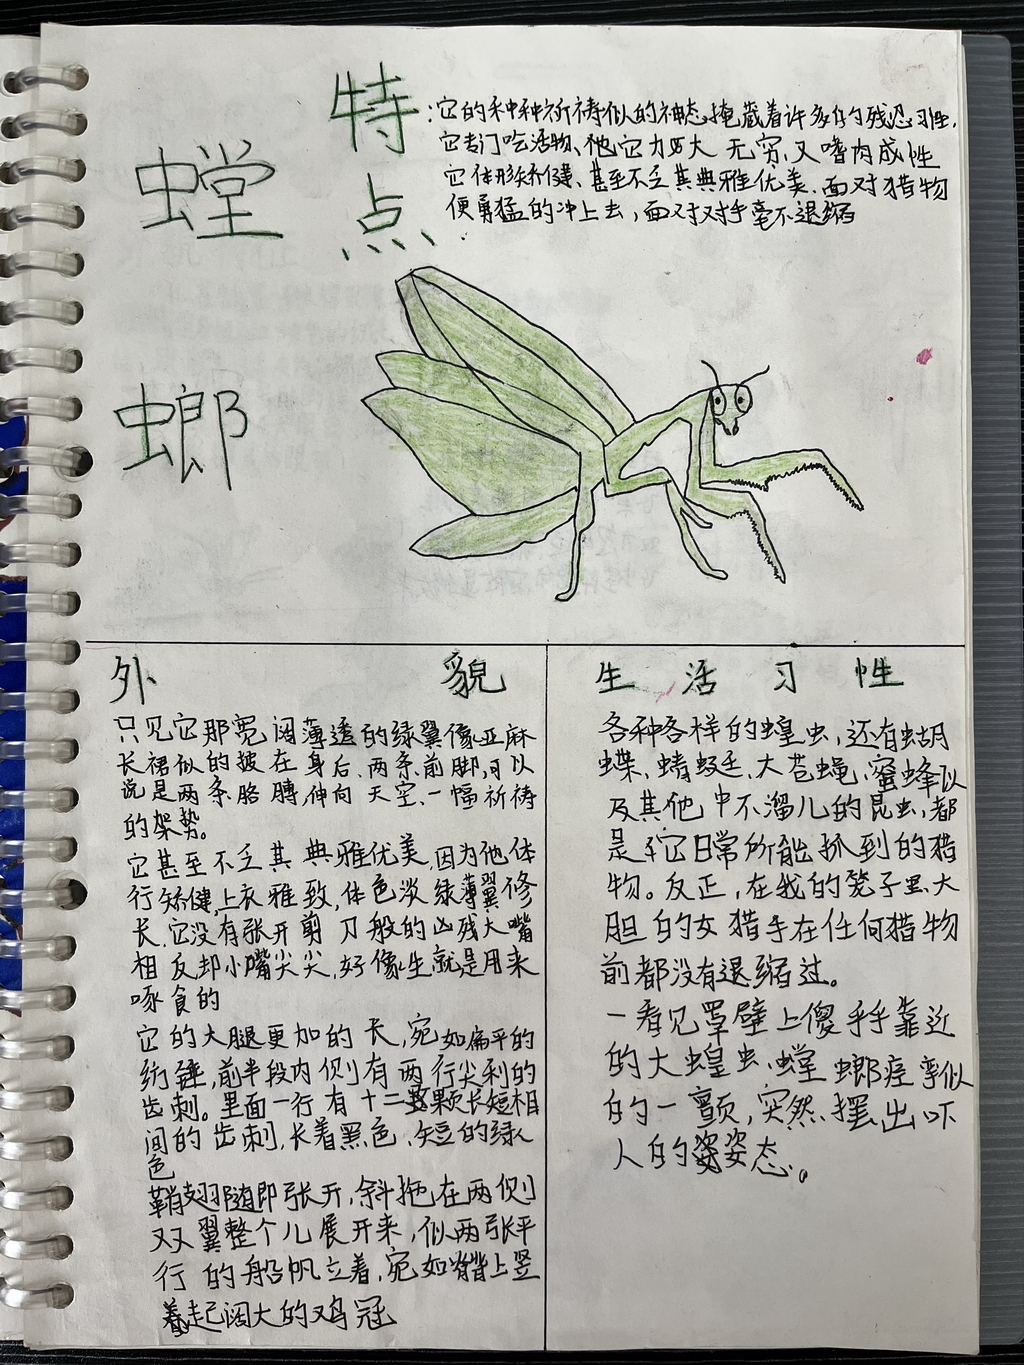 螳
螂
特
点
:它的种种祈祷似的神态掩藏着许多的残忍习性,
它专门吃活物、他它力大无穷、又嗜肉成性
它体形矫健、甚至不乏其典雅优美、面对猎物
便勇猛的冲上去,面对对手毫不退缩
外貌
只见它那宽阔薄透的绿翼像亚麻
长裙似的披在身后、两条前脚,可以
说是两条胳膊,伸向天空、一幅祈祷
的架势。
它甚至不乏其典雅优美,因为他体
行矫健,上衣雅致,体色淡绿薄翼修
长,它没有张开剪刀般的凶残大嘴
相反却小嘴尖尖,好像生就是用来
啄食的
它的大腿更加的长,宛如扁平的
纺锤,前半段内侧有两行尖利的
齿刺。里面一行有十二颗长短相
间的齿刺,长着黑色、短的绿
色
鞘翅随即张开,斜拖在两侧
双翼整个儿展开来,似两张平
行的船帆立着,宛如脊背上竖
着起阔大的鸡冠
生活习性
各种各样的蝗虫,还有蚨胡
蝶、蜻蜓、大苍蝇、蜜蜂以
及其他中不溜儿的昆虫,都
是它日常所能抓到的猎
物。反正,在我的笼子里、大
胆的女猎手在任何猎物
前都没有退缩过。
一看见罩壁上傻乎乎靠近
的大蝗虫、螳螂痉挛似
的一颤,突然、摆出吓
人的姿态。